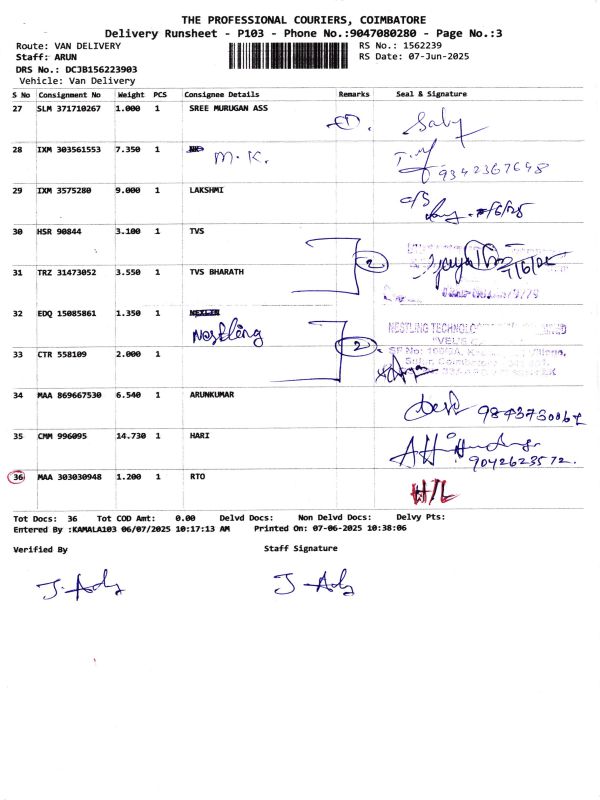 THE PROFESSIONAL COURIERS, COIMBATORE
Delivery Runsheet - P103 - Phone No.:9047080280 - Page No.:3
Route: VAN DELIVERY RS No.: 1562239
Staff: ARUN RS Date: 07-Jun-2025
DRS No.: DCJB156223903
Vehicle: Van Delivery
S No Consignment No Weight PCS Consignee Details Remarks Seal & Signature
27 SLM 371710267 1.000 1 SREE MURUGAN ASS 1.
28 IXM 303561553 7.350 1 M.K. 9342367648
29 IXM 3575280 9.000 1 LAKSHMI
30 HSR 90844 3.100 1 TVS
2
31 TRZ 31473052 3.550 1 TVS BHARATH
32 EDQ 15085861 1.350 1 Nestling NESTLING TECHNOLO
2
33 CTR 558109 2.000 1
34 MAA 869667530 6.540 1 ARUNKUMAR
35 CMM 996095 14.730 1 HARI 9042623572.
36 MAA 303030948 1.200 1 RTO H/L
Tot Docs: 36 Tot COD Amt: 0.00 Delvd Docs: Non Delvd Docs: Delvy Pts:
Entered By :KAMALA103 06/07/2025 10:17:13 AM Printed On: 07-06-2025 10:38:06
Verified By Staff Signature